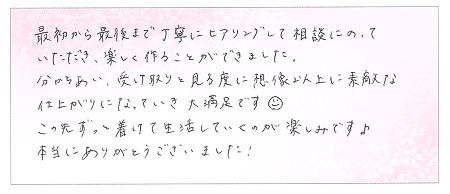 最初から最後まで丁寧にヒアリングして相談にのって
いただき、楽しく作ることができました。
分かちあい、受け取りと見る度に想像以上に素敵な
仕上がりになっていき大満足です☺
この先ずっと着けて生活していくのが楽しみです♪
本当にありがとうございました!